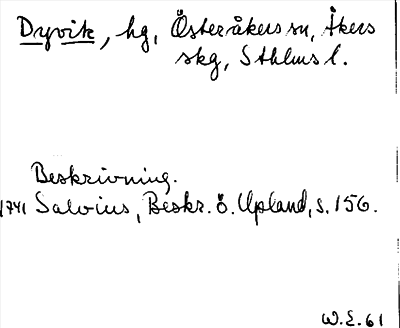 Dyvik, hg, Österåkers sn, Åkers
skg, Sthlms l.
Beskrivning.
1741 Salvius, Beskr. ö. Upland, s. 156.
W.E. 61